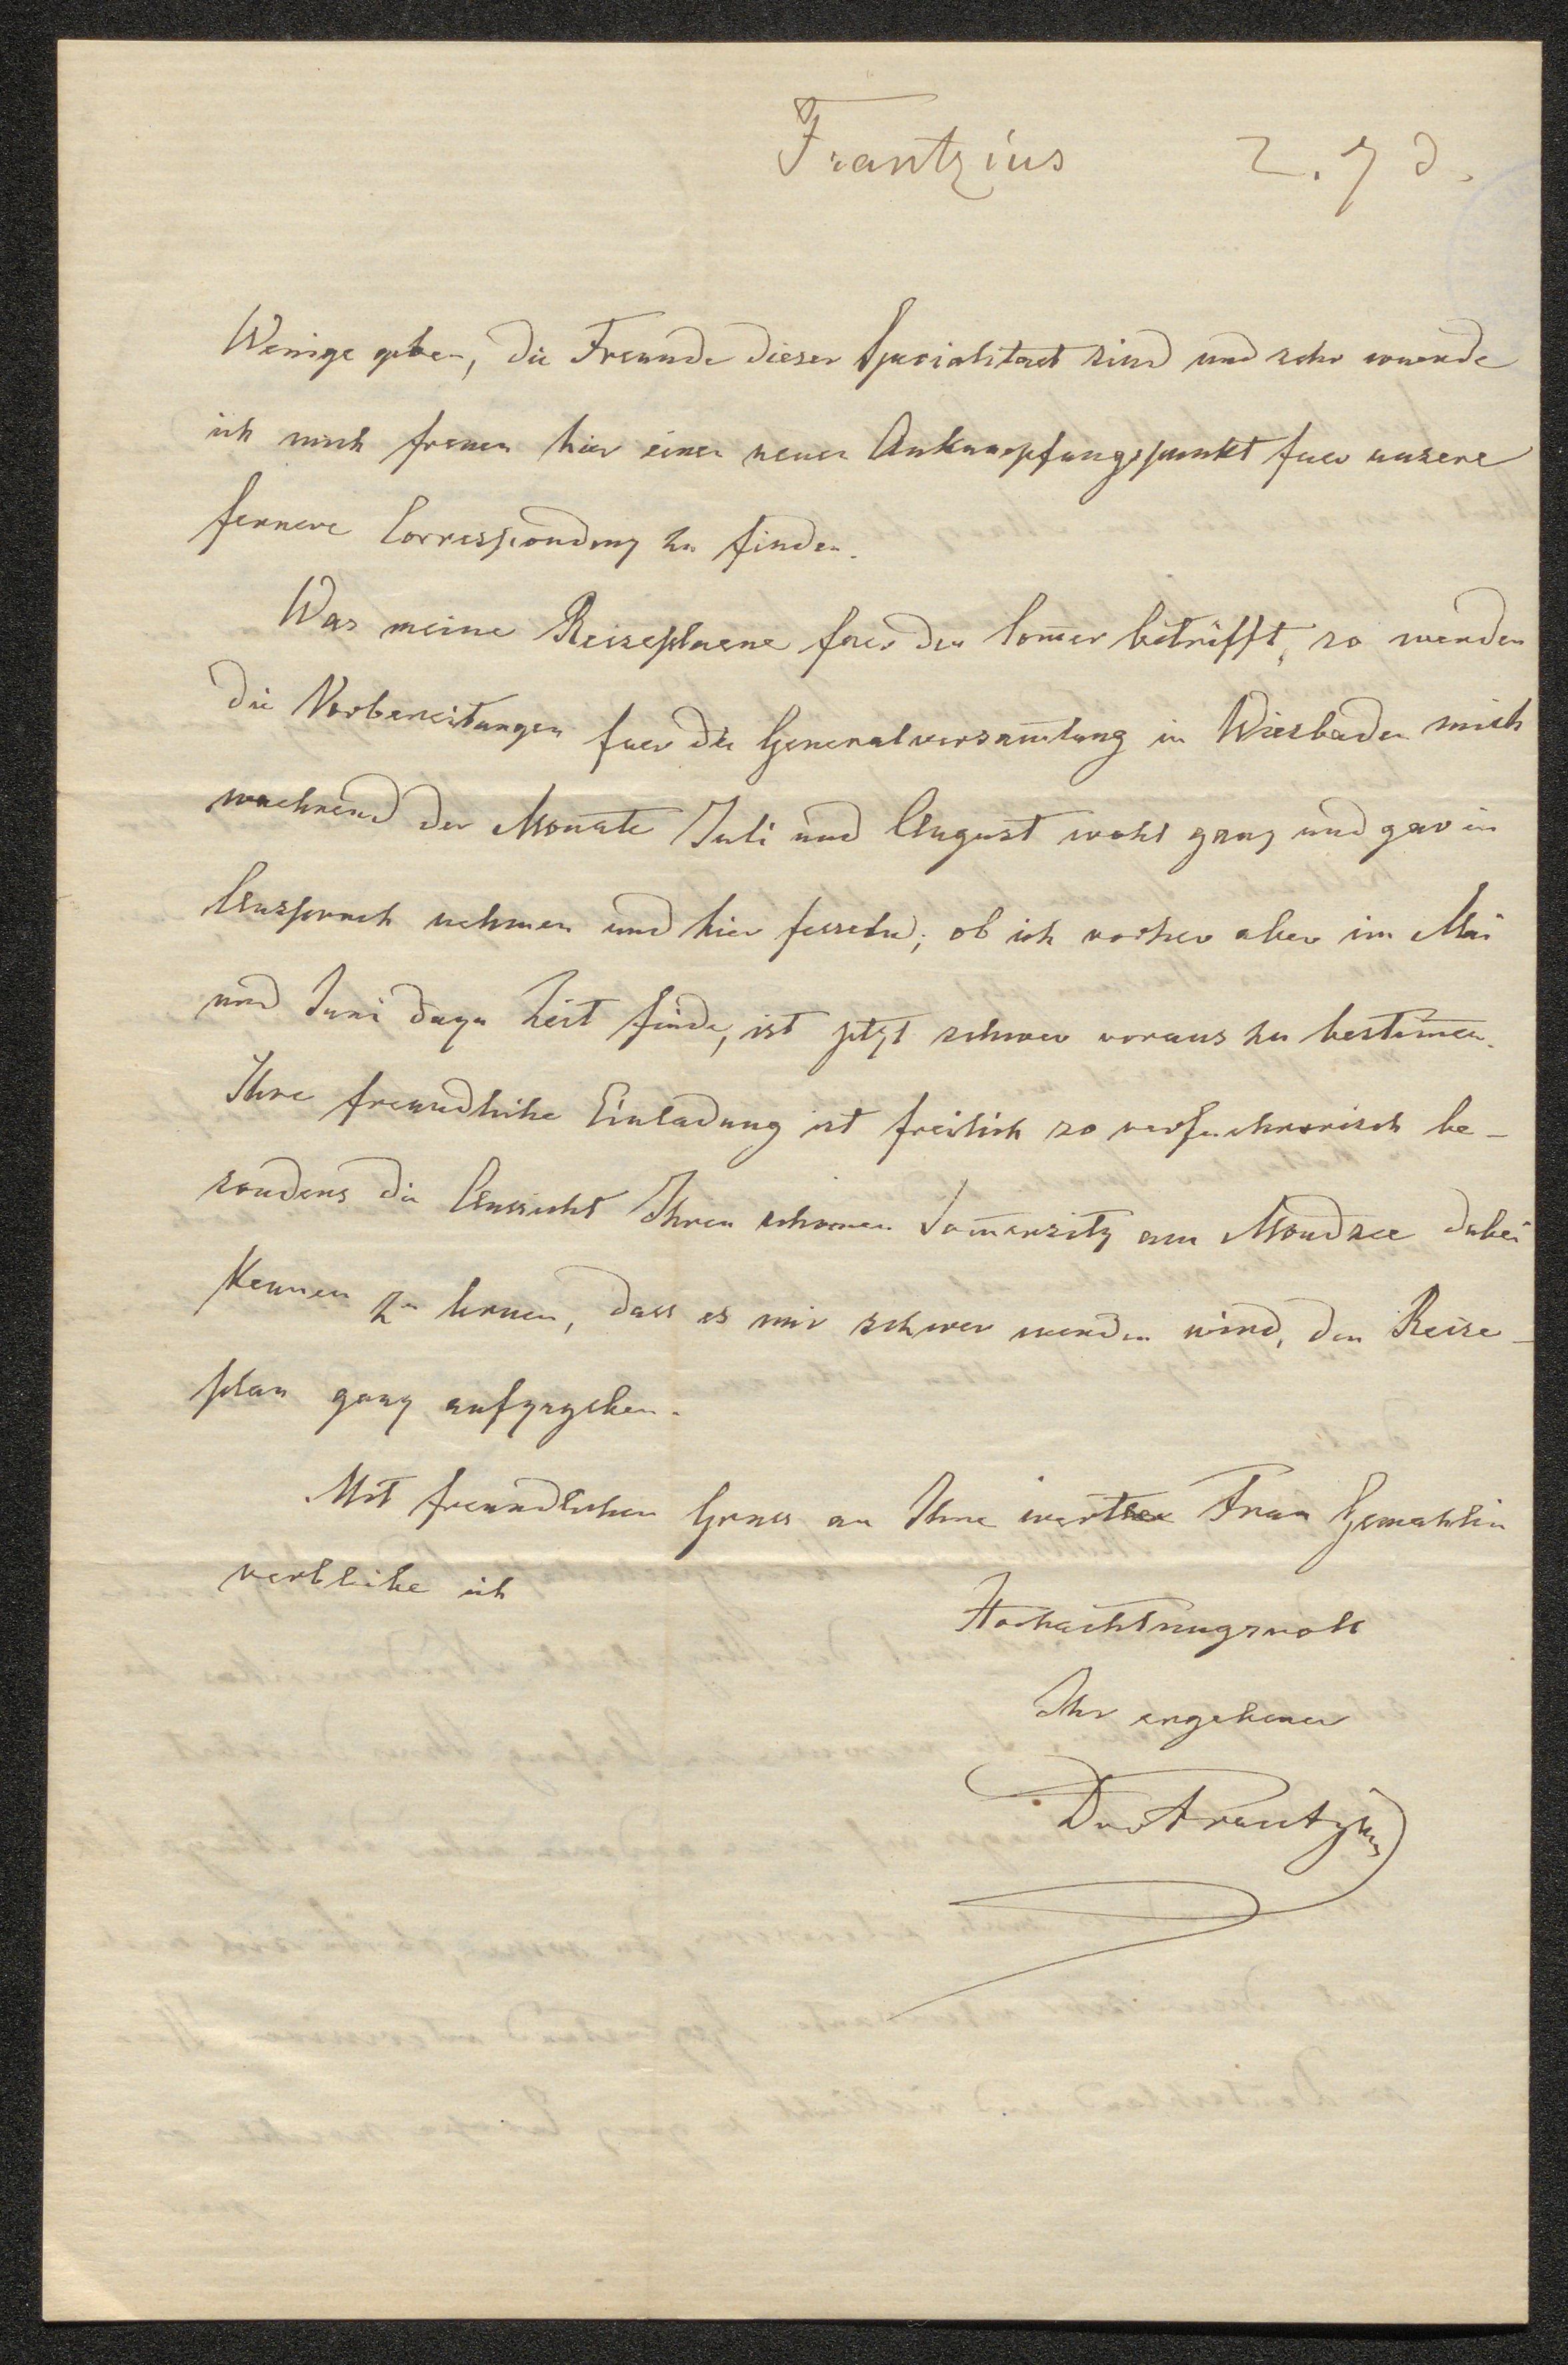 Frantzius 2. 73.
Wenige geben, die Freunde dieser Specialitaet sind und sehr wuerde
ich mich freuen hier einen neuen Anknuepfungspunkt fuer unsere
fernere Correspondenz zu finden.
Was meine Reiseplaene fuer den Som̅er betrifft, so werden
die Vorbereitungen fuer die Generalversam̅lung in Wiesbaden mich
waehrend der Monate Juli und August wohl ganz und gar in
Anspruch nehmen und hier fesseln; ob ich vorher aber im Mai
und Juni dazu Zeit finde, ist jetzt schwer voraus zu bestim̅en.
Ihre freundliche Einladung ist freilich so verfuehrerisch be-
sonders die Aussicht Ihren schoenen Som̅ersitz am Mondsee dabei
kennen zu lernen, dass es mir schwer werden wird, den Reise-
plan ganz aufzugeben.
Mit freundlichen Gruss an Ihre werthe Frau Gemahlin
verbleibe ich
Hochachtungsvoll
Ihr ergebener
Dr v Frantzius